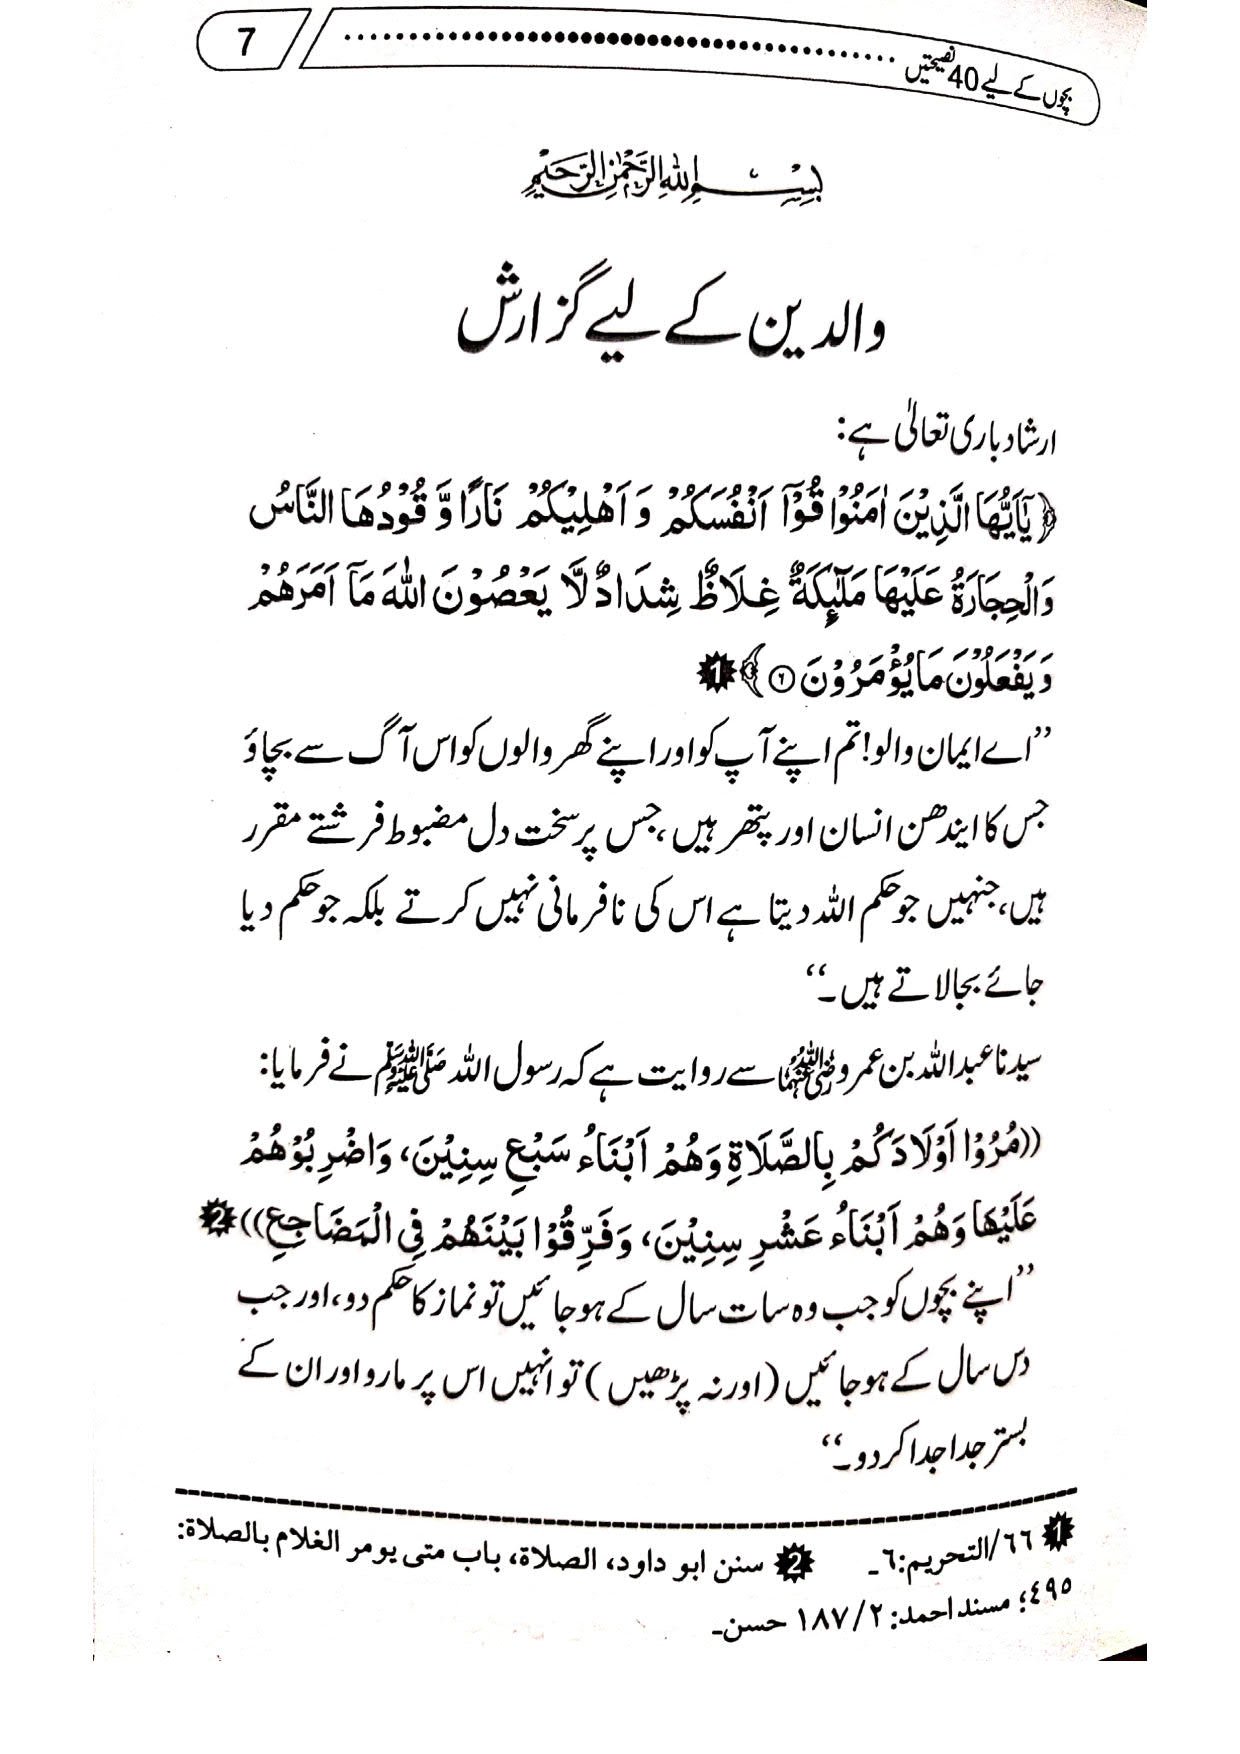 بچوں کے لیے 40 نصیحتیں 7
بِسْمِ اللهِ الرَّحْمٰنِ الرَّحِيْمِ
والدین کے لیے گزارش
ارشاد باری تعالیٰ ہے:
﴿يٰۤاَيُّهَا الَّذِيْنَ اٰمَنُوْا قُوْۤا اَنْفُسَكُمْ وَ اَهْلِيْكُمْ نَارًا وَّ قُوْدُهَا النَّاسُ
وَالْحِجَارَةُ عَلَيْهَا مَلٰٓىِٕكَةٌ غِلَاظٌ شِدَادٌ لَّا يَعْصُوْنَ اللّٰهَ مَاۤ اَمَرَهُمْ
وَيَفْعَلُوْنَ مَا يُؤْمَرُوْنَ ۝۶﴾ 1
’’اے ایمان والو! تم اپنے آپ کو اور اپنے گھر والوں کو اس آگ سے بچاؤ
جس کا ایندھن انسان اور پتھر ہیں، جس پر سخت دل مضبوط فرشتے مقرر
ہیں، جنہیں جو حکم اللہ دیتا ہے اس کی نافرمانی نہیں کرتے بلکہ جو حکم دیا
جائے بجالاتے ہیں۔‘‘
سیدنا عبداللہ بن عمرو رضی اللہ عنہما سے روایت ہے کہ رسول اللہ ﷺ نے فرمایا:
((مُرُوْا اَوْلَادَكُمْ بِالصَّلَاةِ وَهُمْ اَبْنَاءُ سَبْعِ سِنِيْنَ، وَاضْرِبُوْهُمْ
عَلَيْهَا وَهُمْ اَبْنَاءُ عَشْرِ سِنِيْنَ، وَفَرِّقُوْا بَيْنَهُمْ فِي الْمَضَاجِعِ)) 2
’’اپنے بچوں کو جب وہ سات سال کے ہو جائیں تو نماز کا حکم دو، اور جب
دس سال کے ہو جائیں (اور نہ پڑھیں) تو انہیں اس پر مارو اور ان کے
بستر جدا جدا کر دو۔‘‘
1 ٦٦/التحریم:٦۔ 2 سنن ابو داود، الصلاة، باب متی یومر الغلام بالصلاة:
٤٩٥؛ مسند احمد: ٢/ ١٨٧ حسن۔